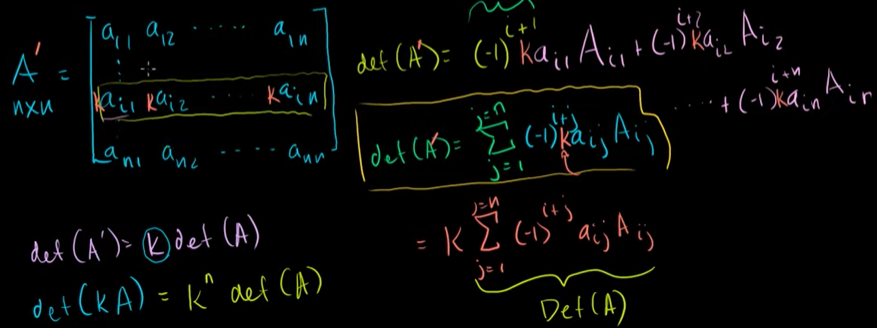 A' = [ a₁₁ a₁₂ ····· a₁ₙ
n×n
⋮
kaᵢ₁ kaᵢ₂ kaᵢₙ
aₙ₁ aₙ₂ ····· aₙₙ ]
det(A') = (-1)^{i+1} kaᵢ₁ Aᵢ₁ + (-1)^{i+2} kaᵢ₂ Aᵢ₂
····· + (-1)^{i+n} kaᵢₙ Aᵢₙ
det(A') = ∑_{j=1}^{j=n} (-1)^{i+j} kaᵢⱼ Aᵢⱼ
= K ∑_{j=1}^{j=n} (-1)^{i+j} aᵢⱼ Aᵢⱼ
Det(A)
det(A') = k det(A)
det(kA) = kⁿ det(A)